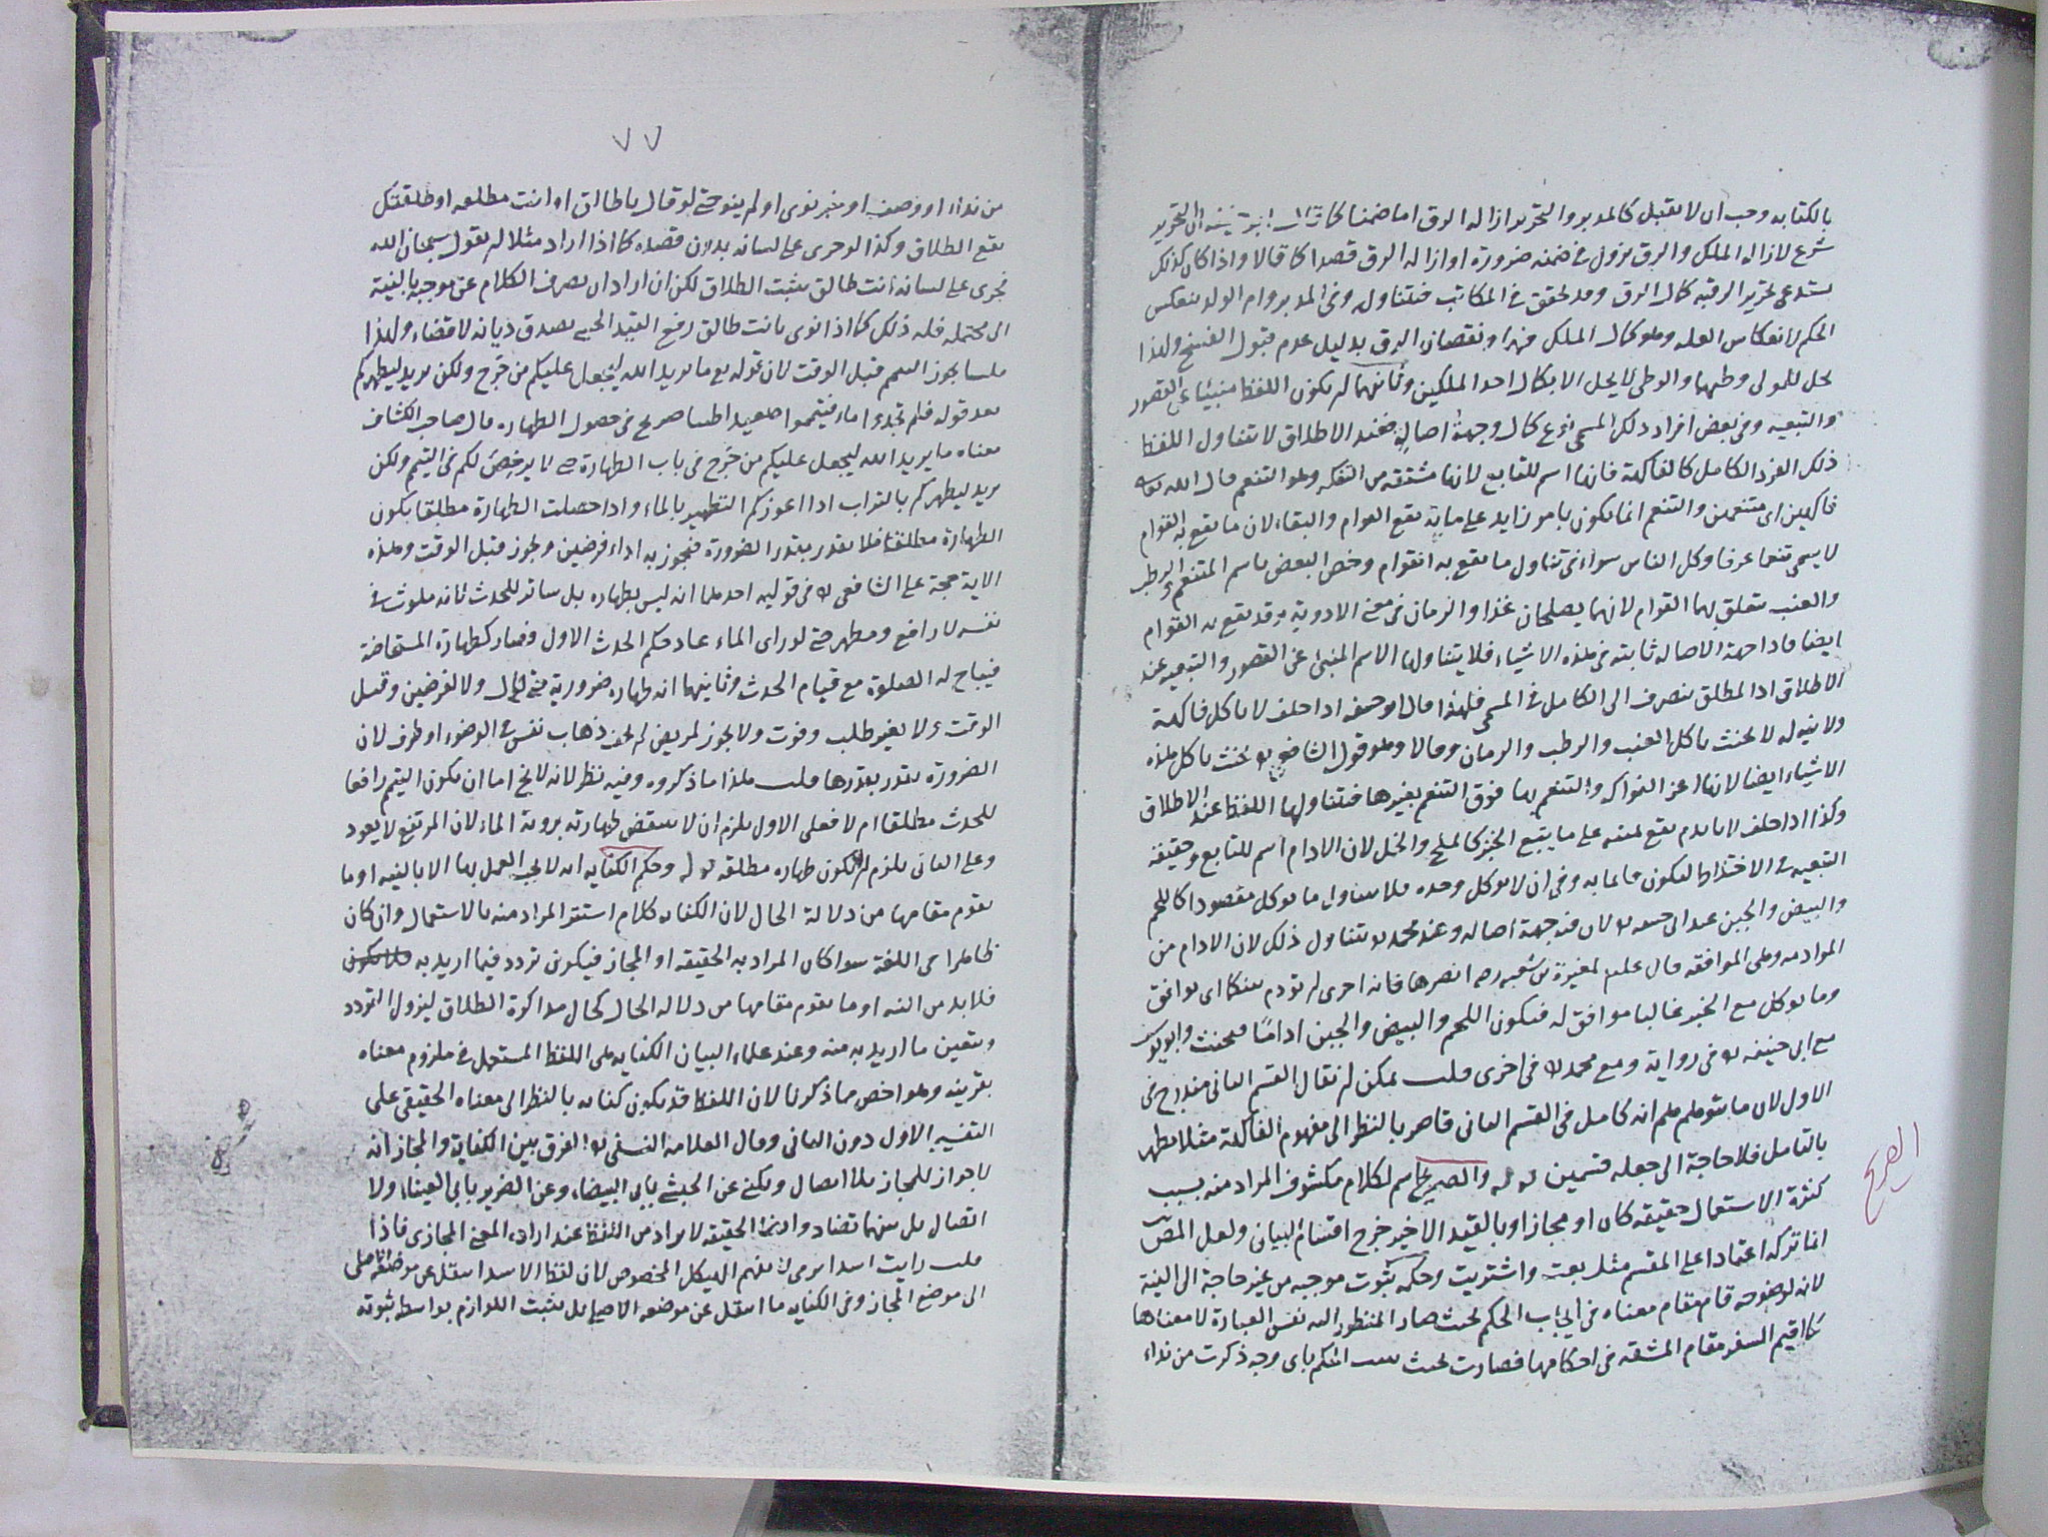 بالكتابه وجب ان لا تقبل كالمدبر والتحرير ازاله الرق اما ضمنا كما قال ان التحرير
شرع لازاله الملك والرق يزول في ضمنه ضرورة او ازاله الرق قصدا كما قالا واذا كان كذلك
يستدعي تحرير الرقبه كمال الرق وقد تحقق في المكاتب فتتناوله وفي المدبر وام الولد ينعكس
الحكم لانعكاس العله وهو كمال الملك فيهما ونقصان الرق بدليل عدم قبول الفسخ ولهذا
يحل للمولى وطيها والوطي لا يحل الا بكمال احد الملكين وثانيهما ان يكون اللفظ منبئا عن القصور
والتبعيه وفي بعض افراد ذلك المسمى نوع كمال وجهة اصالة فعند الاطلاق لا تتناول اللفظ
ذلك الفرد الكامل كالفاكهة فانها اسم للتابع لانها مشتقه من التفكه وهو التنعم قال الله تعالى
فاكهين اى متنعمين والتنعم انما يكون بامر زايد على ما به يقع القوام والبقاء لان ما يقع به القوام
لا يسمى تنعما عرفا وكل الناس سواء في تناول ما يقع به القوام وخص البعض باسم المتنعم والرطب
والعنب يتعلق بهما القوام لانهما يصلحان غذاء والرمان في معنى الادوية وقد يقع به القوام
ايضا فاذا جهة الاصاله ثابته في هذه الاشياء فلا يتناولها الاسم المنبئ عن القصور والتبعيه عند
الاطلاق اذ المطلق ينصرف الى الكامل في المسمى فلهذا قال ابو حنيفه اذا حلف لا ياكل فاكهة
ولا نية له لا يحنث باكل العنب والرطب والرمان وقالا وهو قول الشافعي يحنث باكل هذه
الاشياء ايضا لانها اعز الفواكه والتنعم بها فوق التنعم بغيرها فتتناولها اللفظ عند الاطلاق
وكذا اذا حلف لا ياتدم يقع يمينه على ما يتبع الخبز كالملح والخل لان الادام اسم للتابع وحقيقة
التبعيه في الاختلاط ليكون قائما به وفي ان لا يوكل وحده فلا يتناول ما يوكل مقصودا كاللحم
والبيض والجبن عند ابي حنيفه لان فيه جهة اصاله وعند محمد يتناول ذلك لان الادام من
الموادمه وهي الموافقه قال عليه لمغيرة بن شعبه انصرها فانه احرى ان يودم بينكما اى يوافق
وما يوكل مع الخبز غالبا موافق له فيكون اللحم والبيض والجبن اداما فيحنث وابو يوسف
مع ابي حنيفه في رواية ومع محمد في اخرى قلت يمكن ان يقال القسم الثاني مندرج في
الاول لان ما يتوهم انه كامل في القسم الثاني قاصر بالنظر الى مفهوم الفاكهة مثلا يظهر
بالتامل فلا حاجة الى جعله قسمين قوله والصريح اسم لكلام مكشوف المراد منه بسبب
كثرة الاستعمال حقيقه كان او مجازا وبالقيد الاخير خرج اقسام البيانى ولعل المصنف
انما تركه اعتمادا على المقسم مثل بعت واشتريت وحكمه ثبوت موجبه من غير حاجة الى النية
لانه لوضوحه قام مقام معناه في ايجاب الحكم بحيث صار المنظور اليه نفس العبارة لا معناها
كما اقيم السفر مقام المشقه في احكامها فصارت بحيث يثبت الحكم باى وجه ذكرت من نداء
الصريح
٧٧
من نداء او وصف او خبر نوى او لم ينو حتى لو قال يا طالق او انت مطلقه او طلقتك
يقع الطلاق وكذا لو جرى على لسانه بدون قصده كما اذا اراد مثلا ان يقول سبحان الله
فجرى على لسانه انت طالق يثبت الطلاق لكن ان اراد ان يصرف الكلام عن موجبه بالنية
الى محتمله فله ذلك كما اذا نوى بانت طالق رفع القيد الحسي يصدق ديانه لا قضاء ولهذا
قلنا يجوز التيمم قبل الوقت لان قوله تع ما يريد الله ليجعل عليكم من حرج ولكن يريد ليطهركم
بعد قوله فلم تجدوا ماء فتيمموا صعيدا طيبا صريح في حصول الطهاره قال صاحب الكشاف
معناه ما يريد الله ليجعل عليكم من حرج في باب الطهارة حتى لا يرخص لكم في التيمم ولكن
يريد ليطهركم بالتراب اذا اعوزكم التطهير بالماء واذا حصلت الطهارة مطلقا يكون
الطهارة مطلقا فلا يقدر بقدر الضرورة فيجوز به اداء فرضين ويجوز قبل الوقت وهذه
الاية حجة على الشافعي في قوليه احدهما انه ليس بطهاره بل ساتر للحدث لانه ملوث في
نفسه لا رافع ومطهر حتى لو راى الماء عاد حكم الحدث الاول فصار كطهارة المستحاضة
فيباح له الصلوة مع قيام الحدث وثانيهما انه طهاره ضرورية حتى قال ولا لفرضين وقبل
الوقت ولا بغير طلب وفوت ولا يجوز لمريض لم يخف ذهاب نفس في الوضوء او طرف لان
الضرورة يقدر بقدرها قلت هذا ما ذكروه وفيه نظر لانه لا يخ اما ان يكون التيمم رافعا
للحدث مطلقا ام لا فعلى الاول يلزم ان لا ينتقض طهارته بروية الماء لان المرتفع لا يعود
وعلى الثانى يلزم ان لا يكون طهاره مطلقه قوله وحكم الكنايه ان لا يجب العمل بها الا بالنيه او ما
يقوم مقامها من دلالة الحال لان الكنايه كلام استتر المراد منه بالاستعمال وان كان
ظاهرا في اللغة سوا كان المراد به الحقيقه او المجاز فيكون تردد فيما اريد به فلا يكون
فلا بد من النيه او ما يقوم مقامها من دلاله الحال كحال مذاكرة الطلاق ليزول التردد
ويتعين ما اريد به منه وعند علماء البيان الكنايه هي اللفظ المستعمل في ملزوم معناه
بقرينه وهو اخص مما ذكرنا لان اللفظ قد يكون كنايه بالنظر الى معناه الحقيقي على
التفسير الاول دون الثانى وقال العلامه النسفي الفرق بين الكناية والمجاز انه
لا جواز للمجاز بلا اتصال ويكنى عن الحبشي بابي البيضاء وعن الضرير بابي العيناء ولا
اتصال بل بينهما تضاد وايضا الحقيقه لا يراد من اللفظ عند ارادة المعنى المجازى فاذا
قلت رايت اسدا يرمي لا يفهم الهيكل المخصوص لان لفظ الاسد انتقل عن موضعه الاصلي
الى موضع المجاز وفي الكنايه ما انتقل عن موضعه الاصلي بل يثبت اللوازم بواسطه ثبوته